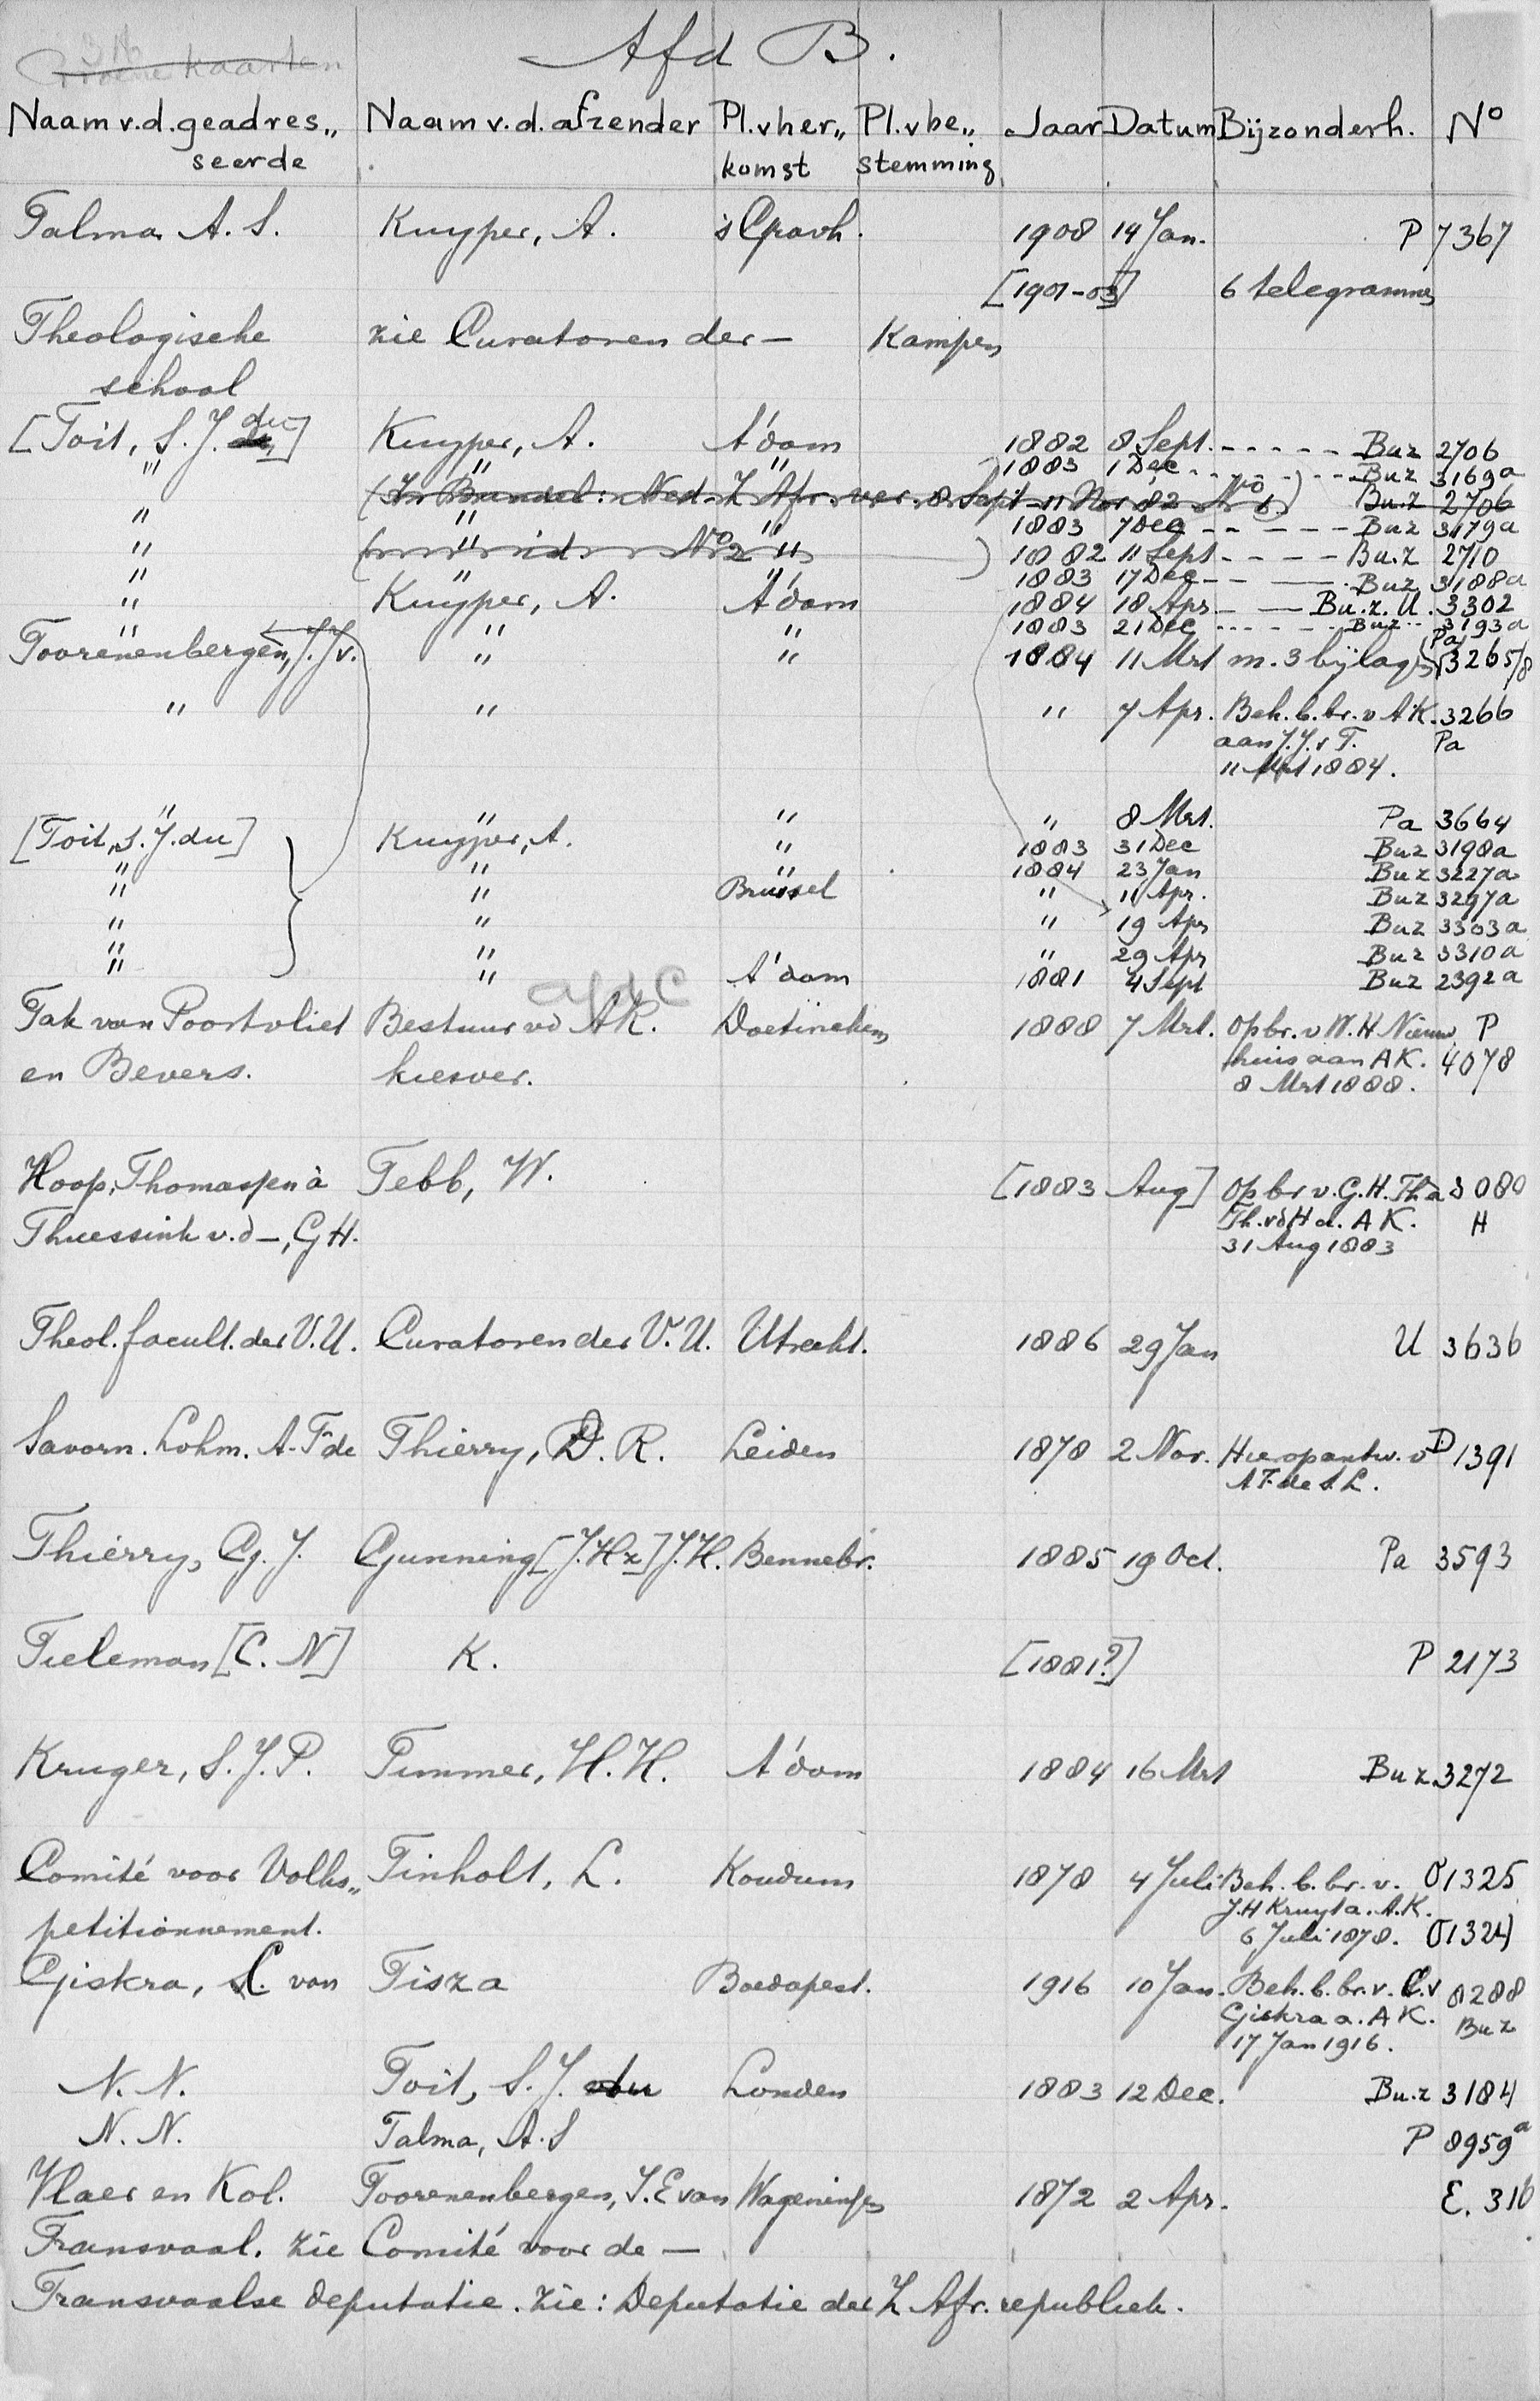 Afd B.
Groene kaarten
Naam v.d. geadres„ Naam v.d. afzender Pl. v her„ Pl. v be„ Jaar Datum Bijzonderh. No
seerde komst stemming
Talma A. S. Kuyper, A. 's Gravh. 1908 14 Jan. P 7367
[1901-03] 6 telegrammes
Theologische zie Curatoren der — Kampen
school
[Toit, S. J. du] Kuyper, A. A'dam 1882 8 Sept. - - - - - Buz 2706
" " " 1883 1 Dec - - - - - Buz 3169a
(In Bundel: Ned. Z. Afr. ver. 8 Sept - 11 Nov 82 No 6.) Bu.z 2706
" " " 1883 7 Dec - - - - - Buz 3179a
" ( " id. No 2 " ) 1882 11 Sept - - - - Bu.z 2710
" " " 1883 17 Dec - - - Buz 3188a
" Kuyper, A. A'dam 1884 18 Apr - - Bu.z. U. 3302
" " " 1883 21 Dec - - - - Buz 3193a
Toorenenbergen, J. J. v. " " 1884 11 Mrt m. 3 bijlag Pa 3265/8
" " " 7 Apr. Beh. b. br. v A K. 3266
aan J. J. v T. Pa
11 Mrt 1884.
" " " " 8 Mrt. Pa 3664
[Toit, S. J. du] Kuyper, A. " 1883 31 Dec Buz 3198a
" " " 1884 23 Jan Buz 3227a
" " Brussel " 11 Apr. Buz 3297a
" " " 19 Apr Buz 3303a
" " " 29 Apr Buz 3310a
" " A'dam 1881 4 Sept Buz 2392a
afd C
Tak van Poortvliet Bestuur vd AR. Doetinchem 1888 7 Mrt. Op br. v W. H Nieuw P
en Bevers. kiesver. huis aan A K. 4078
8 Mrt 1888.
Hoop, Thomassen à Tebb, W. [1883 Aug] Op br v. G. H. Th à 3080
Thuessink v. d —, G H. Th. vd H a. A K. H
31 Aug 1883
Theol. facult. der V. U. Curatoren der V. U. Utrecht. 1886 29 Jan U 3636
Savorn. Lohm. A. F de Thierry, D. R. Leiden 1878 2 Nov. Hierop antw. v D 1391
A F. de S. L.
Thierry, G. J. Gunning [J. Hz] J. H. Bennebr. 1885 19 Oct. Pa 3593
Tieleman [C. N] K. [1881?] P 2173
Kruger, S. J. P. Timmer, H. H. A'dam 1884 16 Mrt Buz. 3272
Comité voor Volks„ Tinholt, L. Koudum 1878 4 Juli Beh. b. br. v. O 1325
petitionnement. J. H Kruyt a. A. K.
6 Juli 1878. O 1324
Giskra, C. von Tisza Boedapest. 1916 10 Jan. Beh. b. br. v. C. v 8288
Giskra a. A K. Buz
17 Jan 1916.
N. N. Toit, S. J. du Londen 1883 12 Dec. Bu.z 3184
N. N. Talma, A. S P 8959a
Vlaer en Kol. Toorenenbergen, J. E van Wageningen 1872 2 Apr. E. 316
Transvaal. zie Comité voor de —
Transvaalse deputatie. zie: Deputatie der Z Afr. republiek.